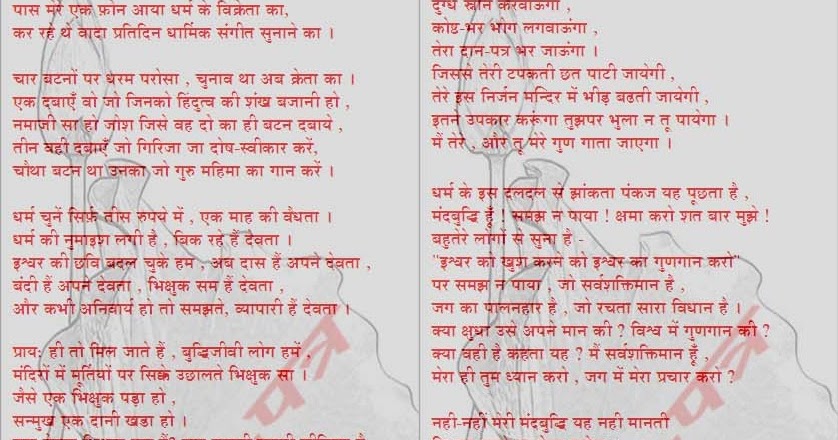 पास मेरे एक फ़ोन आया धर्म के विक्रेता का,
कर रहे थे वादा प्रतिदिन धार्मिक संगीत सुनाने का ।
चार बटनों पर धरम परोसा , चुनाव था अब क्रेता का ।
एक दबाएँ वो जो जिनको हिंदुत्व की शंख बजानी हो ,
नमाजी सा हो जोश जिसे वह दो का ही बटन दबाये ,
तीन वही दबाएँ जो गिरिजा जा दोष-स्वीकार करें,
चौथा बटन था उनका जो गुरु महिमा का गान करें ।
धर्म चुनें सिर्फ़ तीस रुपये में , एक माह की वैधता ।
धर्म की नुमाइश लगी है , बिक रहे हैं देवता ।
इश्वर की छवि बदल चुके हम , अब दास हैं अपने देवता ,
बंदी हैं अपने देवता , भिक्षुक सम हैं देवता ,
और कभी अनिवार्य हो तो समझते, व्यापारी हैं देवता ।
प्राय: ही तो मिल जाते हैं , बुद्धिजीवी लोग हमें ,
मंदिरों में मूर्तियों पर सिक्के उछालते भिक्षुक सा ।
जैसे एक भिक्षुक पड़ा हो ,
सन्मुख एक दानी खडा हो ।
दुग्ध स्नान करवाऊंगा ,
कोष्ठ-भर भोग लगवाऊंगा ,
तेरा दान-पत्र भर जाऊंगा ।
जिससे तेरी टपकती छत पाटी जायेगी ,
तेरे इस निर्जन मन्दिर में भीड़ बढती जायेगी ,
इतने उपकार करूंगा तुझपर भुला न तू पायेगा ।
मैं तेरे , और तू मेरे गुण गाता जाएगा ।
धर्म के इस दलदल से झांकता पंकज यह पूछता है ,
मंदबुद्धि हूँ ! समझ न पाया ! क्षमा करो शत बार मुझे !
बहुतेरे लोगों से सुना है -
"इश्वर को खुश करने को इश्वर का गुणगान करो"
पर समझ न पाया , जो सर्वशक्तिमान है ,
जग का पालनहार है , जो रचता सारा विधान है ।
क्या क्षुधा उसे अपने मान की ? विश्व में गुणगान की ?
क्या वही है कहता यह ? मैं सर्वशक्तिमान हूँ ,
मेरा ही तुम ध्यान करो , जग में मेरा प्रचार करो ?
नही-नहीं मेरी मंदबुद्धि यह नही मानती
पत्र
पत्र